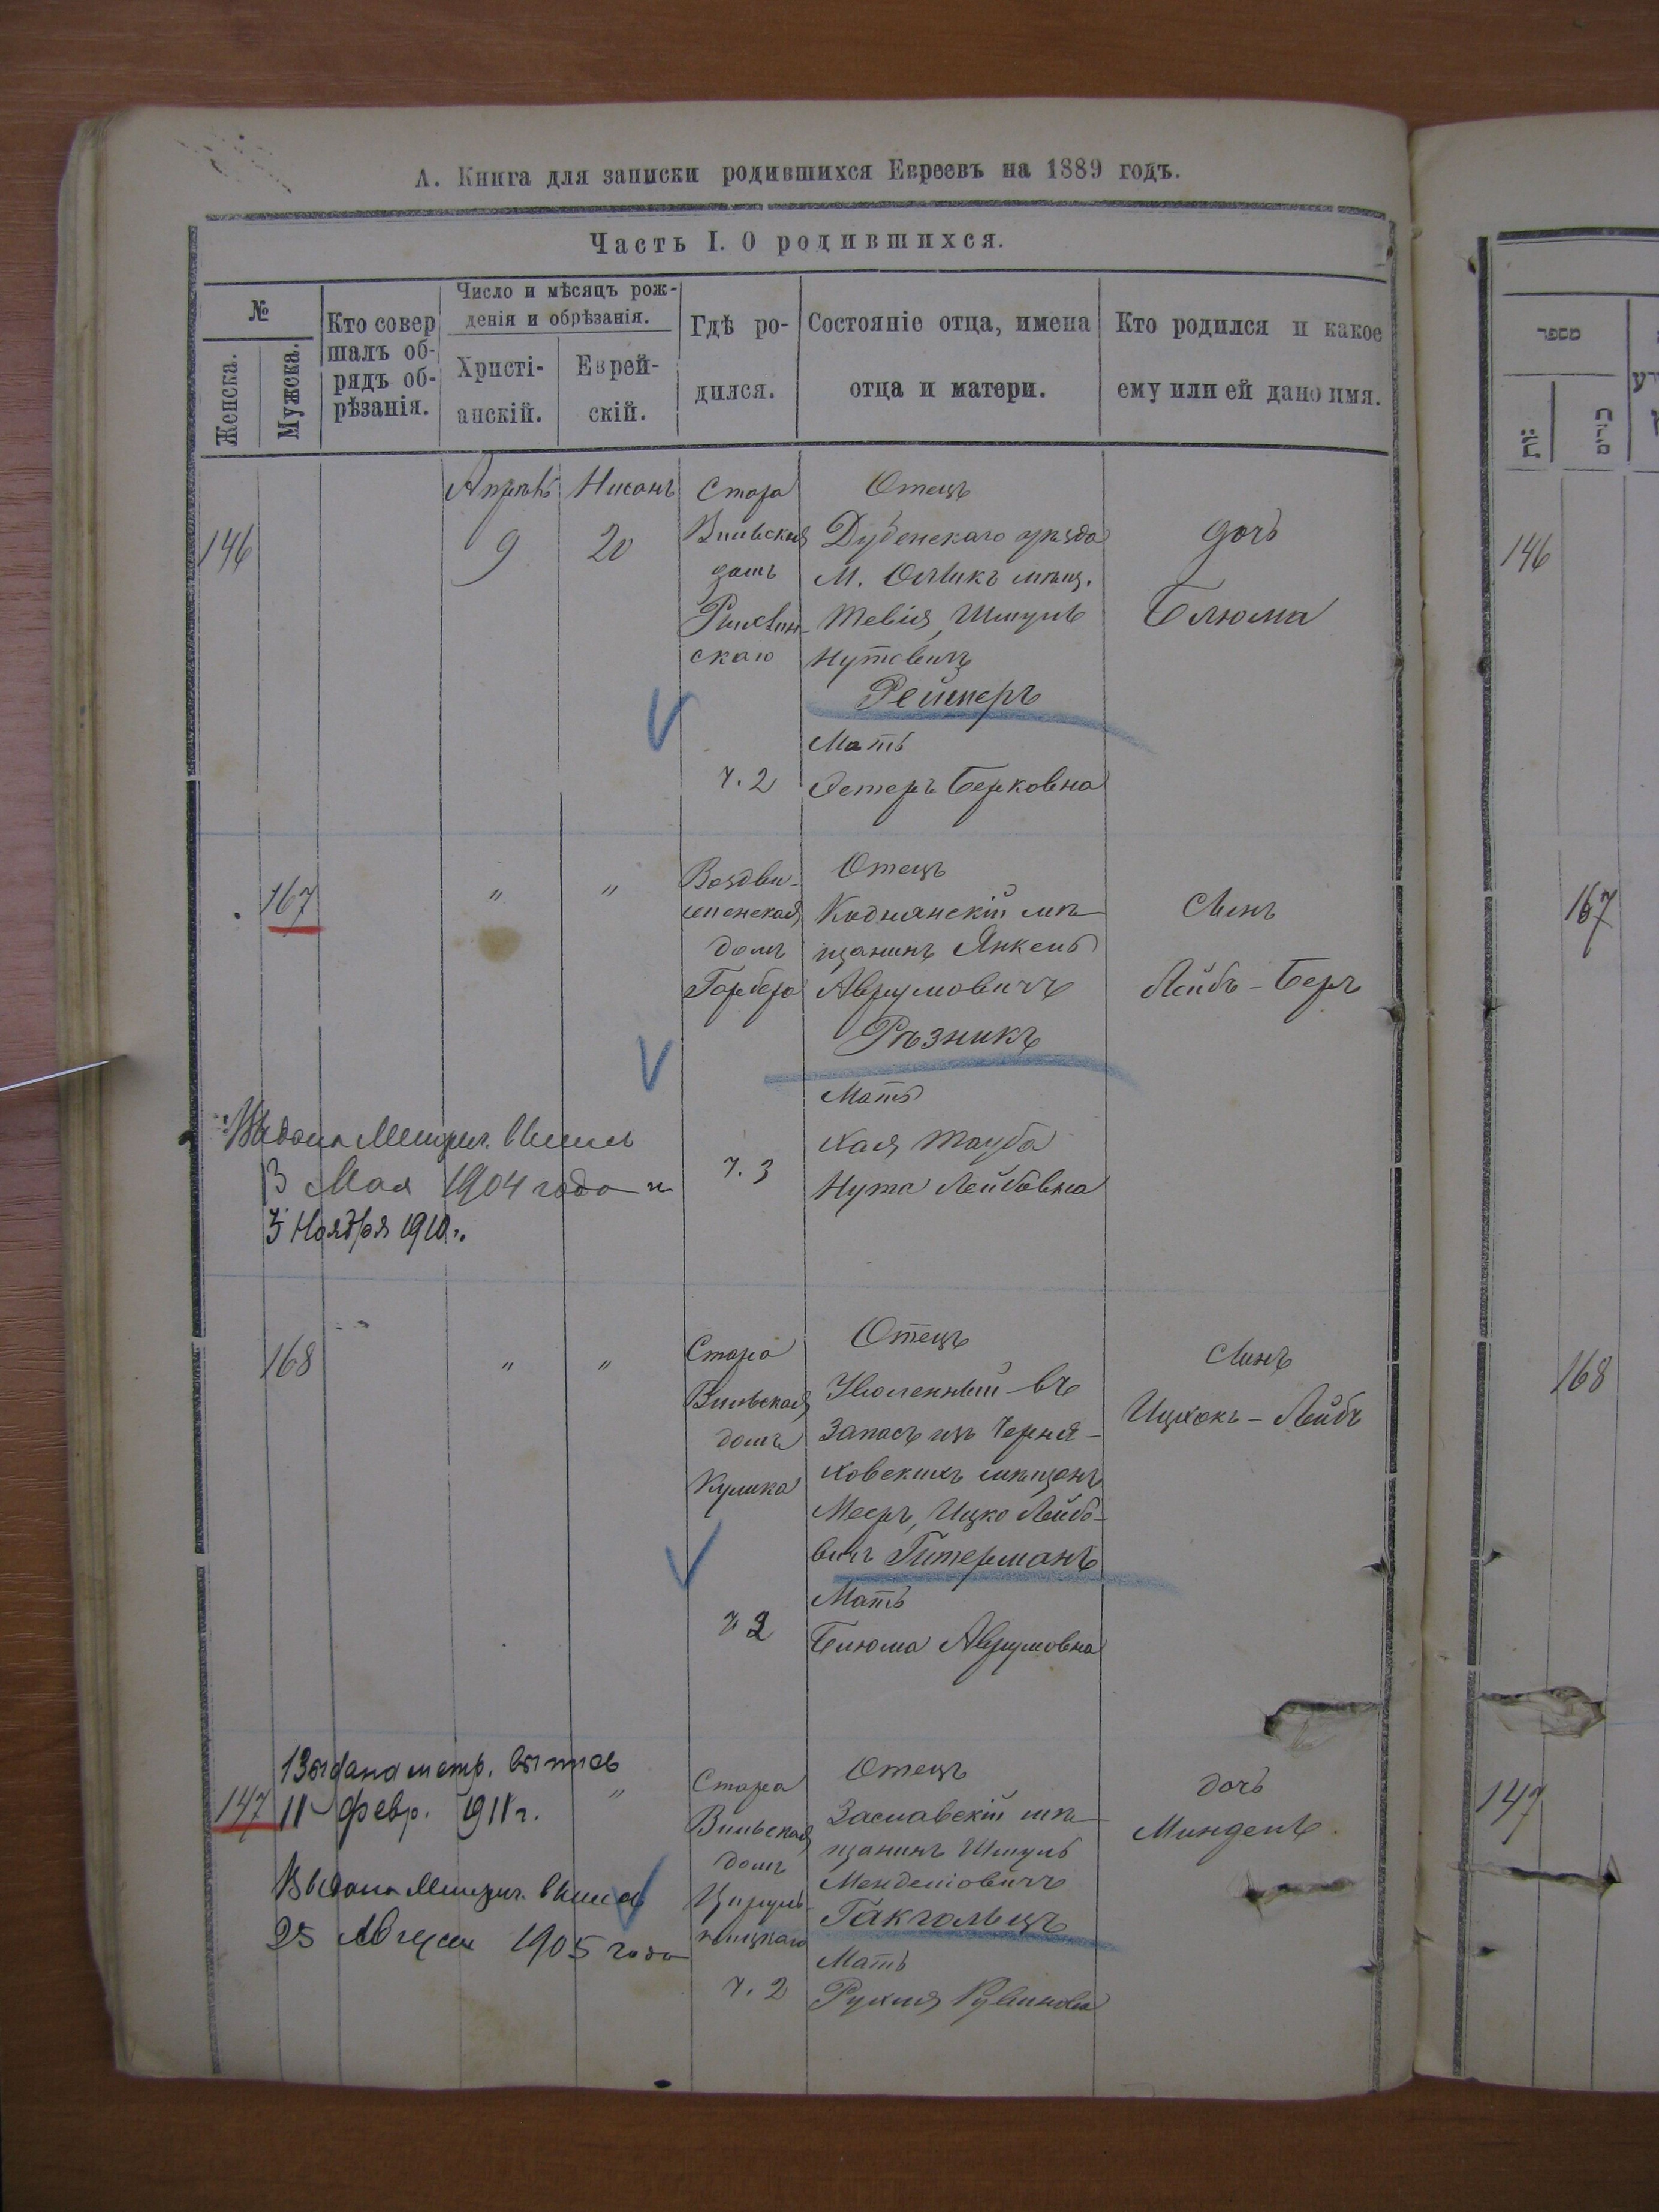 А. Книга для записки родившихся Евреевъ на 1889 годъ.
Часть I. О родившихся.
№
Женска.
Мужска.
Кто совер
шалъ об-
рядъ об-
рѣзанія.
Число и мѣсяцъ рож-
денія и обрѣзанія.
Христі-
анскій.
Еврей-
скій.
Гдѣ ро-
дился.
Состояніе отца, имена
отца и матери.
Кто родился и какое
ему или ей дано имя.
146
Апрѣль
9
Нисанъ
20
Старо
Вильская
домъ
скаго
ч. 2
Отецъ
Дубенскаго уѣзда
М. Олыкъ мѣщ.
Тевія, Шмуль
Нутовичъ
Рейтеръ
Мать
Естеръ Берковна
дочь
Блюма
167
"
"
Воздви-
женская
домъ
Гарбера
ч. 3
Отецъ
Коднянскій мѣ-
щанинъ Янкель
Аврумовичъ
Рѣзникъ
Мать
Хая Тауба
Нута Лейбовна
Сынъ
Лейбъ-Беръ
Выдана Метрич. выпись
3 Мая 1904 года и
5 Ноября 1910 г.
168
"
"
Старо
Вильская
домъ
Кулика
ч 2
Отецъ
Уволенный въ
Запасъ изъ Черня-
ховскихъ мѣщанъ
Мееръ, Ицко Лейбо-
вичъ Гитерманъ
Мать
Блюма Аврумовна
Сынъ
Ицхокъ-Лейбъ
147
Выдана метр. выпись
11 февр. 1911 г.
"
Выдана Метрич. выпись
25 Августа 1905 года
Старо
Вильская
домъ
ч. 2
Отецъ
Заславскій мѣ-
щанинъ Шмуль
Менделіовичъ
Гакгольцъ
Мать
Рухля Рувиновна
дочь
Миндель.
מספר
146
167
168
147